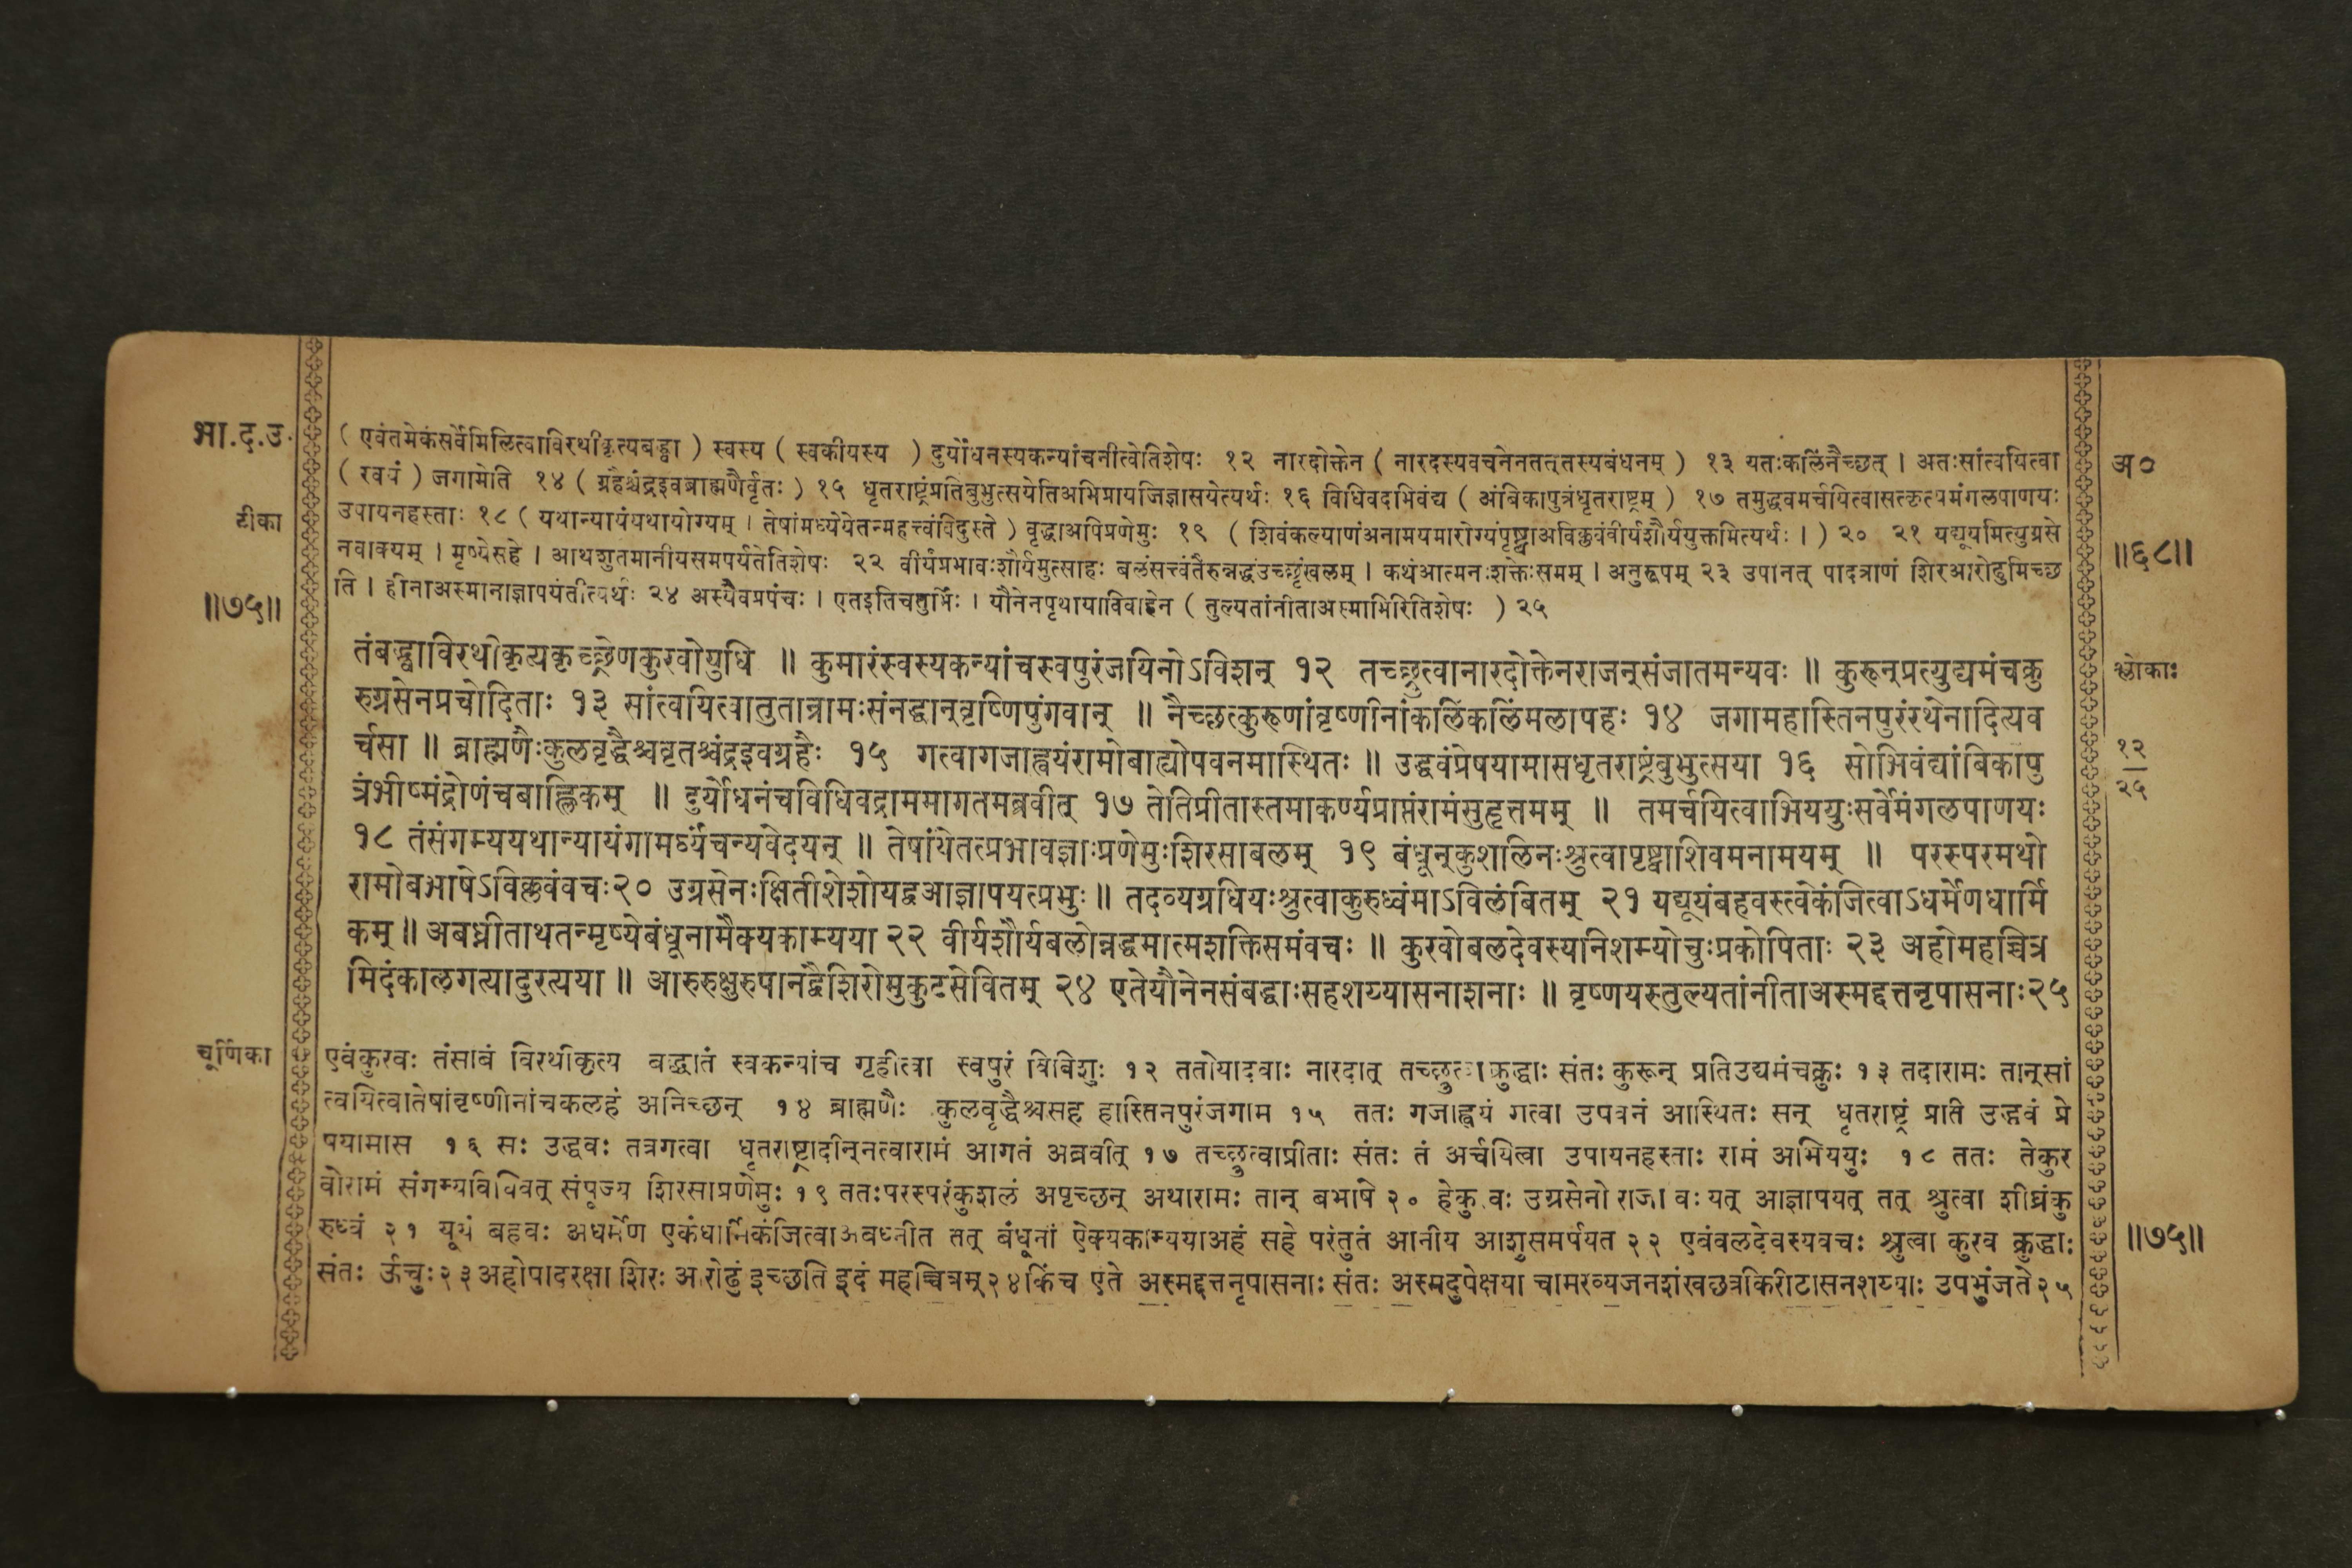 भा.द.उ.
( एवंतमेकंसर्वेमिलित्वाविरथीकृत्यबद्ध्वा ) स्वस्य ( स्वकीयस्य ) दुर्योधनस्यकन्यांचनीत्वेतिशेषः १२ नारदोक्तेन ( नारदस्यवचनेनतत्तस्यबंधनम् ) १३ यतःकलिंनैच्छत् । अतःसांत्वयित्वा
( स्वयं ) जगामेति १४ ( ग्रहैश्चंद्रइवब्राह्मणैर्वृतः ) १५ धृतराष्ट्रंप्रतिबुभुत्सयेतिअभिप्रायजिज्ञासयेत्यर्थः १६ विधिवदभिवंद्य ( अंबिकापुत्रंधृतराष्ट्रम् ) १७ तमुद्धवमर्चयित्वासत्कृत्यमंगलपाणयः
अ०
टीका
उपायनहस्ताः १८ ( यथान्यायंयथायोग्यम् । तेषांमध्येयेतन्महत्त्वंविदुस्ते ) वृद्धाअपिप्रणेमुः १९ ( शिवंकल्याणंअनामयमारोग्यंपृष्ट्वाअविक्लवंवीर्यशौर्ययुक्तमित्यर्थः । ) २० २१ यद्यूयमित्युग्रसे
नवाक्यम् । मृष्येसहे । आथशुतमानीयसमर्पयतेतिशेषः २२ वीर्यंप्रभावःशौर्यमुत्साहः बलंसत्त्वंतैरुन्नद्धंउच्छृंखलम् । कथंआत्मनःशक्तेःसमम् । अनुरूपम् २३ उपानत् पादत्राणं शिरआरोढुमिच्छ
॥६८॥
ति । हीनाअस्मानाज्ञापयंतीत्यर्थः २४ अस्यैवप्रपंचः । एतइतिचतुर्भिः । यौनेनपृथायाविवाहेन ( तुल्यतांनीताअस्माभिरितिशेषः ) २५
॥७५॥
तंबद्ध्वाविरथीकृत्यकृच्छ्रेणकुरवोयुधि ॥ कुमारंस्वस्यकन्यांचस्वपुरंजयिनोऽविशन् १२ तच्छ्रुत्वानारदोक्तेनराजन्संजातमन्यवः ॥ कुरून्प्रत्युद्यमंचक्रु
श्लोकाः
रुग्रसेनप्रचोदिताः १३ सांत्वयित्वातुतान्रामःसंनद्धान्वृष्णिपुंगवान् ॥ नैच्छत्कुरूणांवृष्णीनांकलिंकलिमलापहः १४ जगामहास्तिनपुरंरथेनादित्यव
र्चसा ॥ ब्राह्मणैःकुलवृद्धैश्चवृतश्चंद्रइवग्रहैः १५ गत्वागजाह्वयंरामोबाह्योपवनमास्थितः ॥ उद्धवंप्रेषयामासधृतराष्ट्रंबुभुत्सया १६ सोभिवंद्यांबिकापु
१२
त्रंभीष्मंद्रोणंचबाह्लिकम् ॥ दुर्योधनंचविधिवद्राममागतमब्रवीत् १७ तेतिप्रीतास्तमाकर्ण्यप्राप्तंरामंसुहृत्तमम् ॥ तमर्चयित्वाभिययुःसर्वेमंगलपाणयः
२५
१८ तंसंगम्ययथान्यायंगामर्घ्यंचन्यवेदयन् ॥ तेषांयेतत्प्रभावज्ञाःप्रणेमुःशिरसाबलम् १९ बंधून्कुशलिनःश्रुत्वापृष्ट्वाशिवमनामयम् ॥ परस्परमथो
रामोबभाषेऽविक्लवंवचः२० उग्रसेनःक्षितीशेशोयद्वआज्ञापयत्प्रभुः ॥ तदव्यग्रधियःश्रुत्वाकुरुध्वंमाऽविलंबितम् २१ यद्यूयंबहवस्त्वेकंजित्वाऽधर्मेणधार्मि
कम् ॥ अबध्नीताथतन्मृष्येबंधूनामैक्यकाम्यया २२ वीर्यशौर्यबलोन्नद्धमात्मशक्तिसमंवचः ॥ कुरवोबलदेवस्यनिशम्योचुःप्रकोपिताः २३ अहोमहच्चित्र
मिदंकालगत्यादुरत्यया ॥ आरुरुक्षुरुपानद्वैशिरोमुकुटसेवितम् २४ एतेयौनेनसंबद्धाःसहशय्यासनाशनाः ॥ वृष्णयस्तुल्यतांनीताअस्मद्दत्तनृपासनाः२५
चूर्णिका
एवंकुरवः तंसांबं विरथीकृत्य बद्ध्वातं स्वकन्यांच गृहीत्वा स्वपुरं विविशुः १२ ततोयादवाः नारदात् तच्छ्रुत्वाक्रुद्धाः संतः कुरून् प्रतिउद्यमंचक्रुः १३ तदारामः तान्सां
त्वयित्वातेषांवृष्णीनांचकलहं अनिच्छन् १४ ब्राह्मणैः कुलवृद्धैश्चसह हास्तिनपुरंजगाम १५ ततः गजाह्वयं गत्वा उपवनं आस्थितः सन् धृतराष्ट्रं प्रति उद्धवं प्रे
षयामास १६ सः उद्धवः तत्रगत्वा धृतराष्ट्रादीन्नत्वारामं आगतं अब्रवीत् १७ तच्छ्रुत्वाप्रीताः संतः तं अर्चयित्वा उपायनहस्ताः रामं अभिययुः १८ ततः तेकुर
वोरामं संगम्यविधिवत् संपूज्य शिरसाप्रणेमुः १९ ततःपरस्परंकुशलं अपृच्छन् अथारामः तान् बभाषे २० हेकु वः उग्रसेनो राजा वः यत् आज्ञापयत् तत् श्रुत्वा शीघ्रंकु
रुध्वं २१ यूयं बहवः अधर्मेण एकंधार्मिकंजित्वाअबध्नीत तत् बंधूनां ऐक्यकाम्ययाअहं सहे परंतुतं आनीय आशुसमर्पयत २२ एवंबलदेवस्यवचः श्रुत्वा कुरव क्रुद्धाः
॥७५॥
संतः ऊचुः२३अहोपादरक्षा शिरः आरोढुं इच्छति इदं महच्चित्रम्२४किंच एते अस्मद्दत्तनृपासनाः संतः अस्मदुपेक्षया चामरव्यजनशंखछत्रकिरीटासनशय्याः उपभुंजते२५